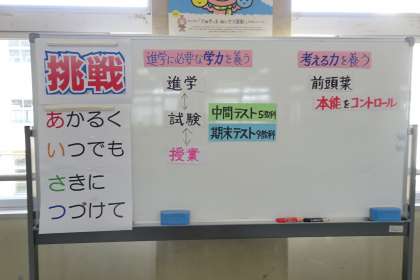 挑戦
あかるく
いつでも
さきに
つづけて
進学に必要な学力を養う
進学
試験
授業
中間テスト5教科
期末テスト9教科
考える力を養う
前頭葉
本能をコントロール